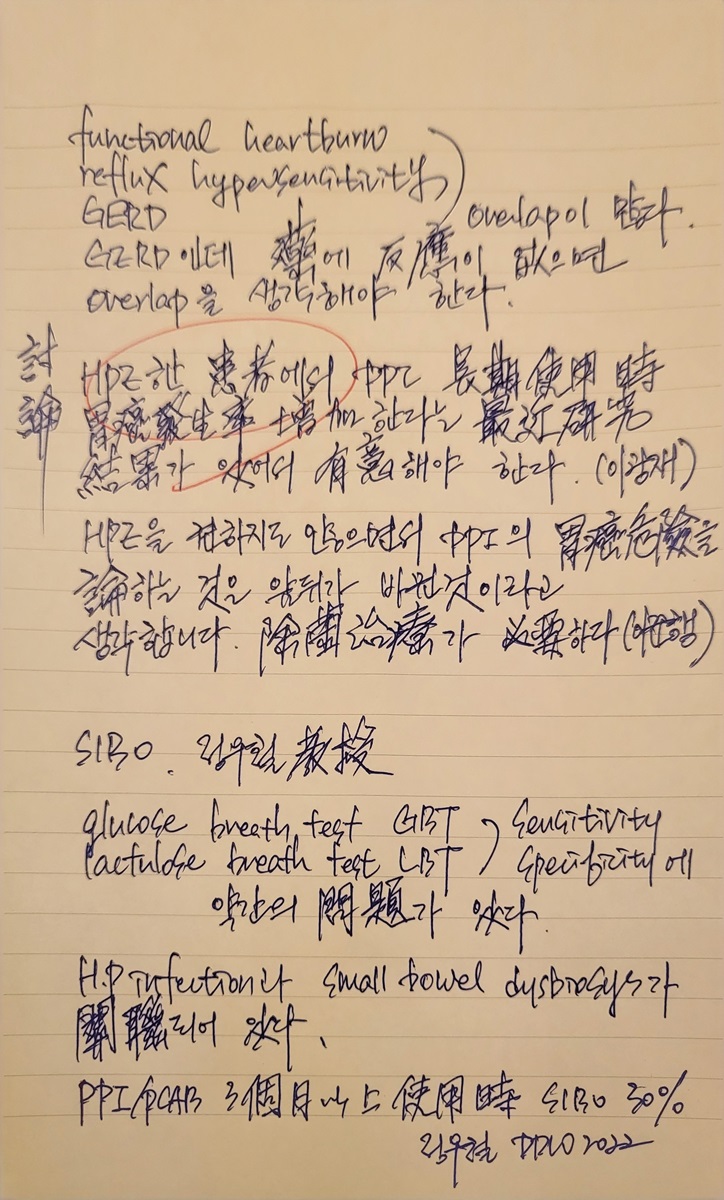 functional heartburn
reflux hypersensitivity
GERD overlap이 많다.
GERD인데 藥에 反應이 없으면
overlap을 생각해야 한다.
討論
HPE한 患者에서 PPI 長期使用時
胃癌發生率 增加한다는 最近硏究
結果가 있어서 有意해야 한다. (이광재)
HPE을 권하지도 않으면서 PPI의 胃癌危險을
論하는 것은 앞뒤가 바뀐것이라고
생각합니다. 除菌治療가 必要하다
SIBO. 정우철 敎授
glucose breath test GBT
lactulose breath test LBT
sensitivity
specificity에
약간의 問題가 있다.
H.P infection과 small bowel dysbiosys가
關聯되어 있다.
PPI/PCAB 3個月以上 使用時 SIBO 30%
정우철 DDW 2022